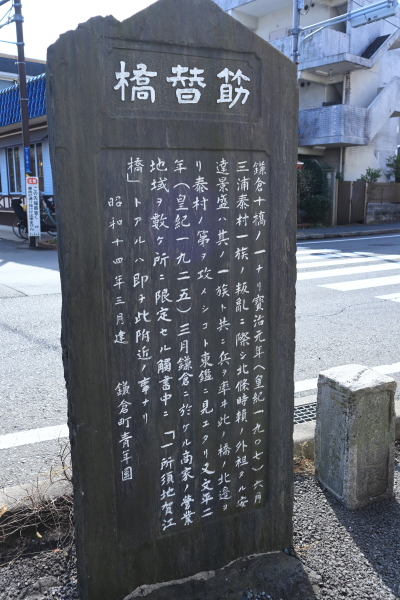 筋替橋
鎌倉十橋ノ一ナリ寳治元年(皇紀一九〇七)六月
三浦泰村一族ノ叛亂ニ際シ北條時頼ノ外祖タル安
達景盛ハ其ノ一族ト共ニ兵ヲ率ヰ此ノ橋ノ北邊ヨ
リ泰村ノ第ヲ攻メシコト東鑑ニ見エタリ又文永二
年(皇紀一九二五)三月鎌倉ニ於ケル商家ノ營業
地域ヲ數ケ所ニ限定セル觸書中ニ「一所須地賀江
橋」トアルハ即チ此附近ノ事ナリ
昭和十四年三月建　鎌倉町青年團